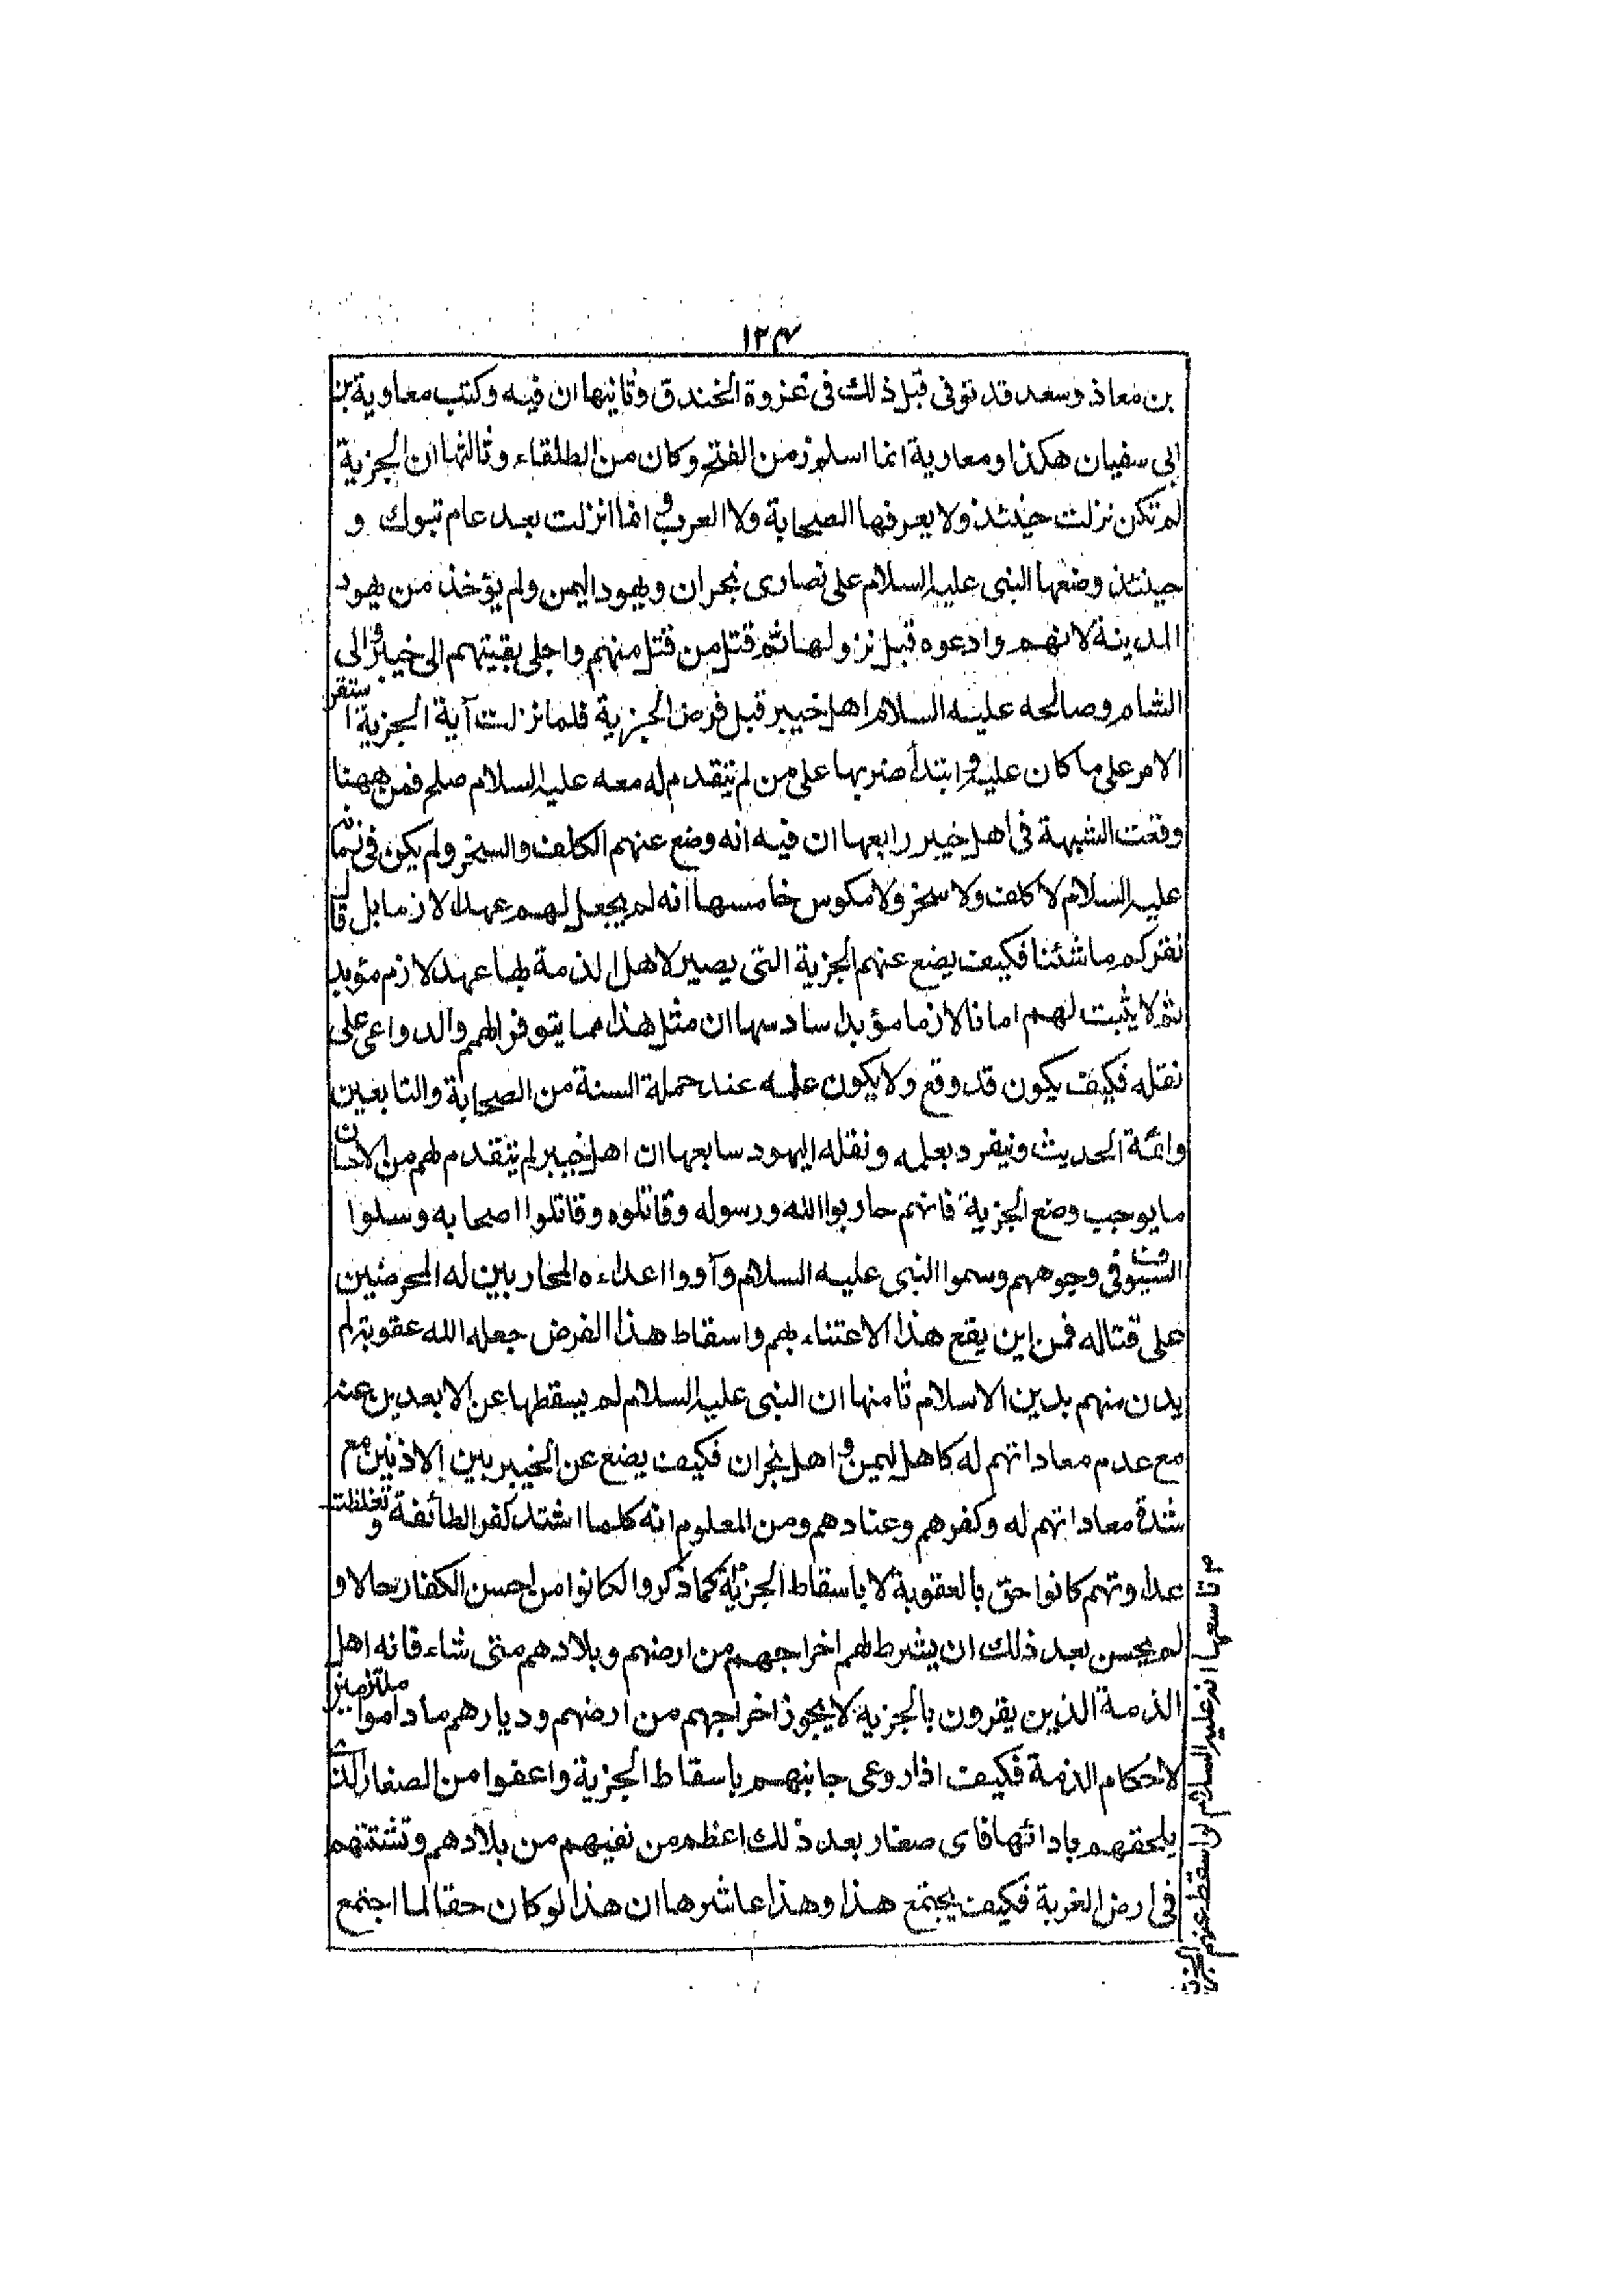 ١٢٤
بن معاذ وسعد قد توفى قبل ذلك فى غزوة الخندق وثانيها ان فيه وكتب معاوية بن
ابى سفيان هكذا ومعاوية انما اسلم زمن الفتح وكان من الطلقاء وثالثها ان الجزية
لم تكن نزلت حينئذ ولا يعرفها الصحابة ولا العرب و انما انزلت بعد عام تبوك و
حينئذ وضعها النبى عليه السلام على نصارى نجران ويهود اليمن ولم يؤخذ من يهود
المدينة لانهم وادعوه قبل نزولها ثم قتل من قتل منهم واجلى بقيتهم الى خيبر والى
الشام وصالحه عليه السلام اهل خيبر قبل فرض الجزية فلما نزلت آية الجزية استقر
الامر على ما كان عليه و ابتدأ ضربها على من لم يتقدم له معه عليه السلام صلح فمن ههنا
وقعت الشبهة فى اهل خيبر رابعها ان فيه انه وضع عنهم الكلف والسخر ولم يكن فى زمانه
عليه السلام لا كلف ولا سخر ولا مكوس خامسها انه لم يجعل لهم عهدا لازما بل قال
نقركم ما شئنا فكيف يضع عنهم الجزية التى يصير لاهل الذمة بها عهد لازم مؤبد
ثم لا يثبت لهم امانا لازما مؤبدا سادسها ان مثل هذا مما يتوفر الهمم والدواعى على
نقله فكيف يكون قد وقع ولا يكون علمه عند حملة السنة من الصحابة والتابعين
وائمة الحديث وينفرد بعلمه ونقله اليهود سابعها ان اهل خيبر لم يتقدم لهم من الاحسان
ما يوجب وضع الجزية فانهم حاربوا الله ورسوله وقاتلوه وقاتلوا اصحابه وسلوا
السيوف فى وجوههم وسموا النبى عليه السلام وآووا اعداءه المحاربين له المحرضين
على قتاله فمن اين يقع هذا الاعتناء بهم واسقاط هذا الفرض جعله الله عقوبة لم
يدن منهم بدين الاسلام ثامنها ان النبى عليه السلام لم يسقطها عن الابعدين عنه
مع عدم معاداتهم له كاهل اليمن و اهل نجران فكيف يضع عن الخيبريين الادنين مع
شدة معاداتهم له وكفرهم وعنادهم ومن المعلوم انه كلما اشتد كفر الطائفة و تغلظت
عداوتهم كانوا حق بالعقوبة لا باسقاط الجزية كما ذكروا لكانوا من احسن الكفار حالا و
لم يحسن بعد ذلك ان يشرط لهم اخراجهم من ارضهم وبلادهم متى شاء فانه اهل
الذمة الذين يقرون بالجزية لا يجوز اخراجهم من ارضهم وديارهم ما داموا ملتزمين
لاحكام الذمة فكيف اذا روعى جانبهم باسقاط الجزية واعفوا من الصغار الذى
يلحقهم بادائها فاى صغار بعد ذلك اعظم من نفيهم من بلادهم وتشتتهم
فى ارض الغربة فكيف يجتمع هذا وهذا عاشرها ان هذا لو كان حقا لما اجتمع
تاسعها انه عليه السلام لو اسقط عنهم الجزية